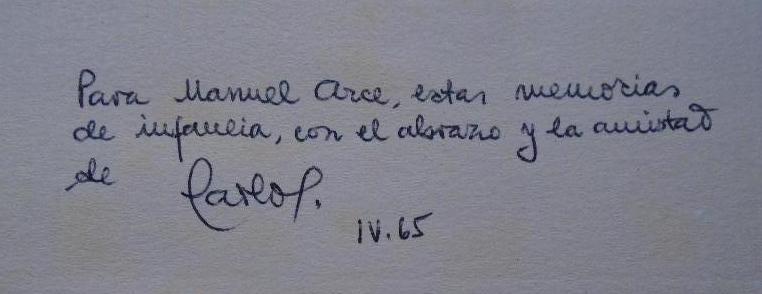 Para Manuel Arce, estas memorias
de infancia, con el abrazo y la amistad
de Carlos.
IV.65